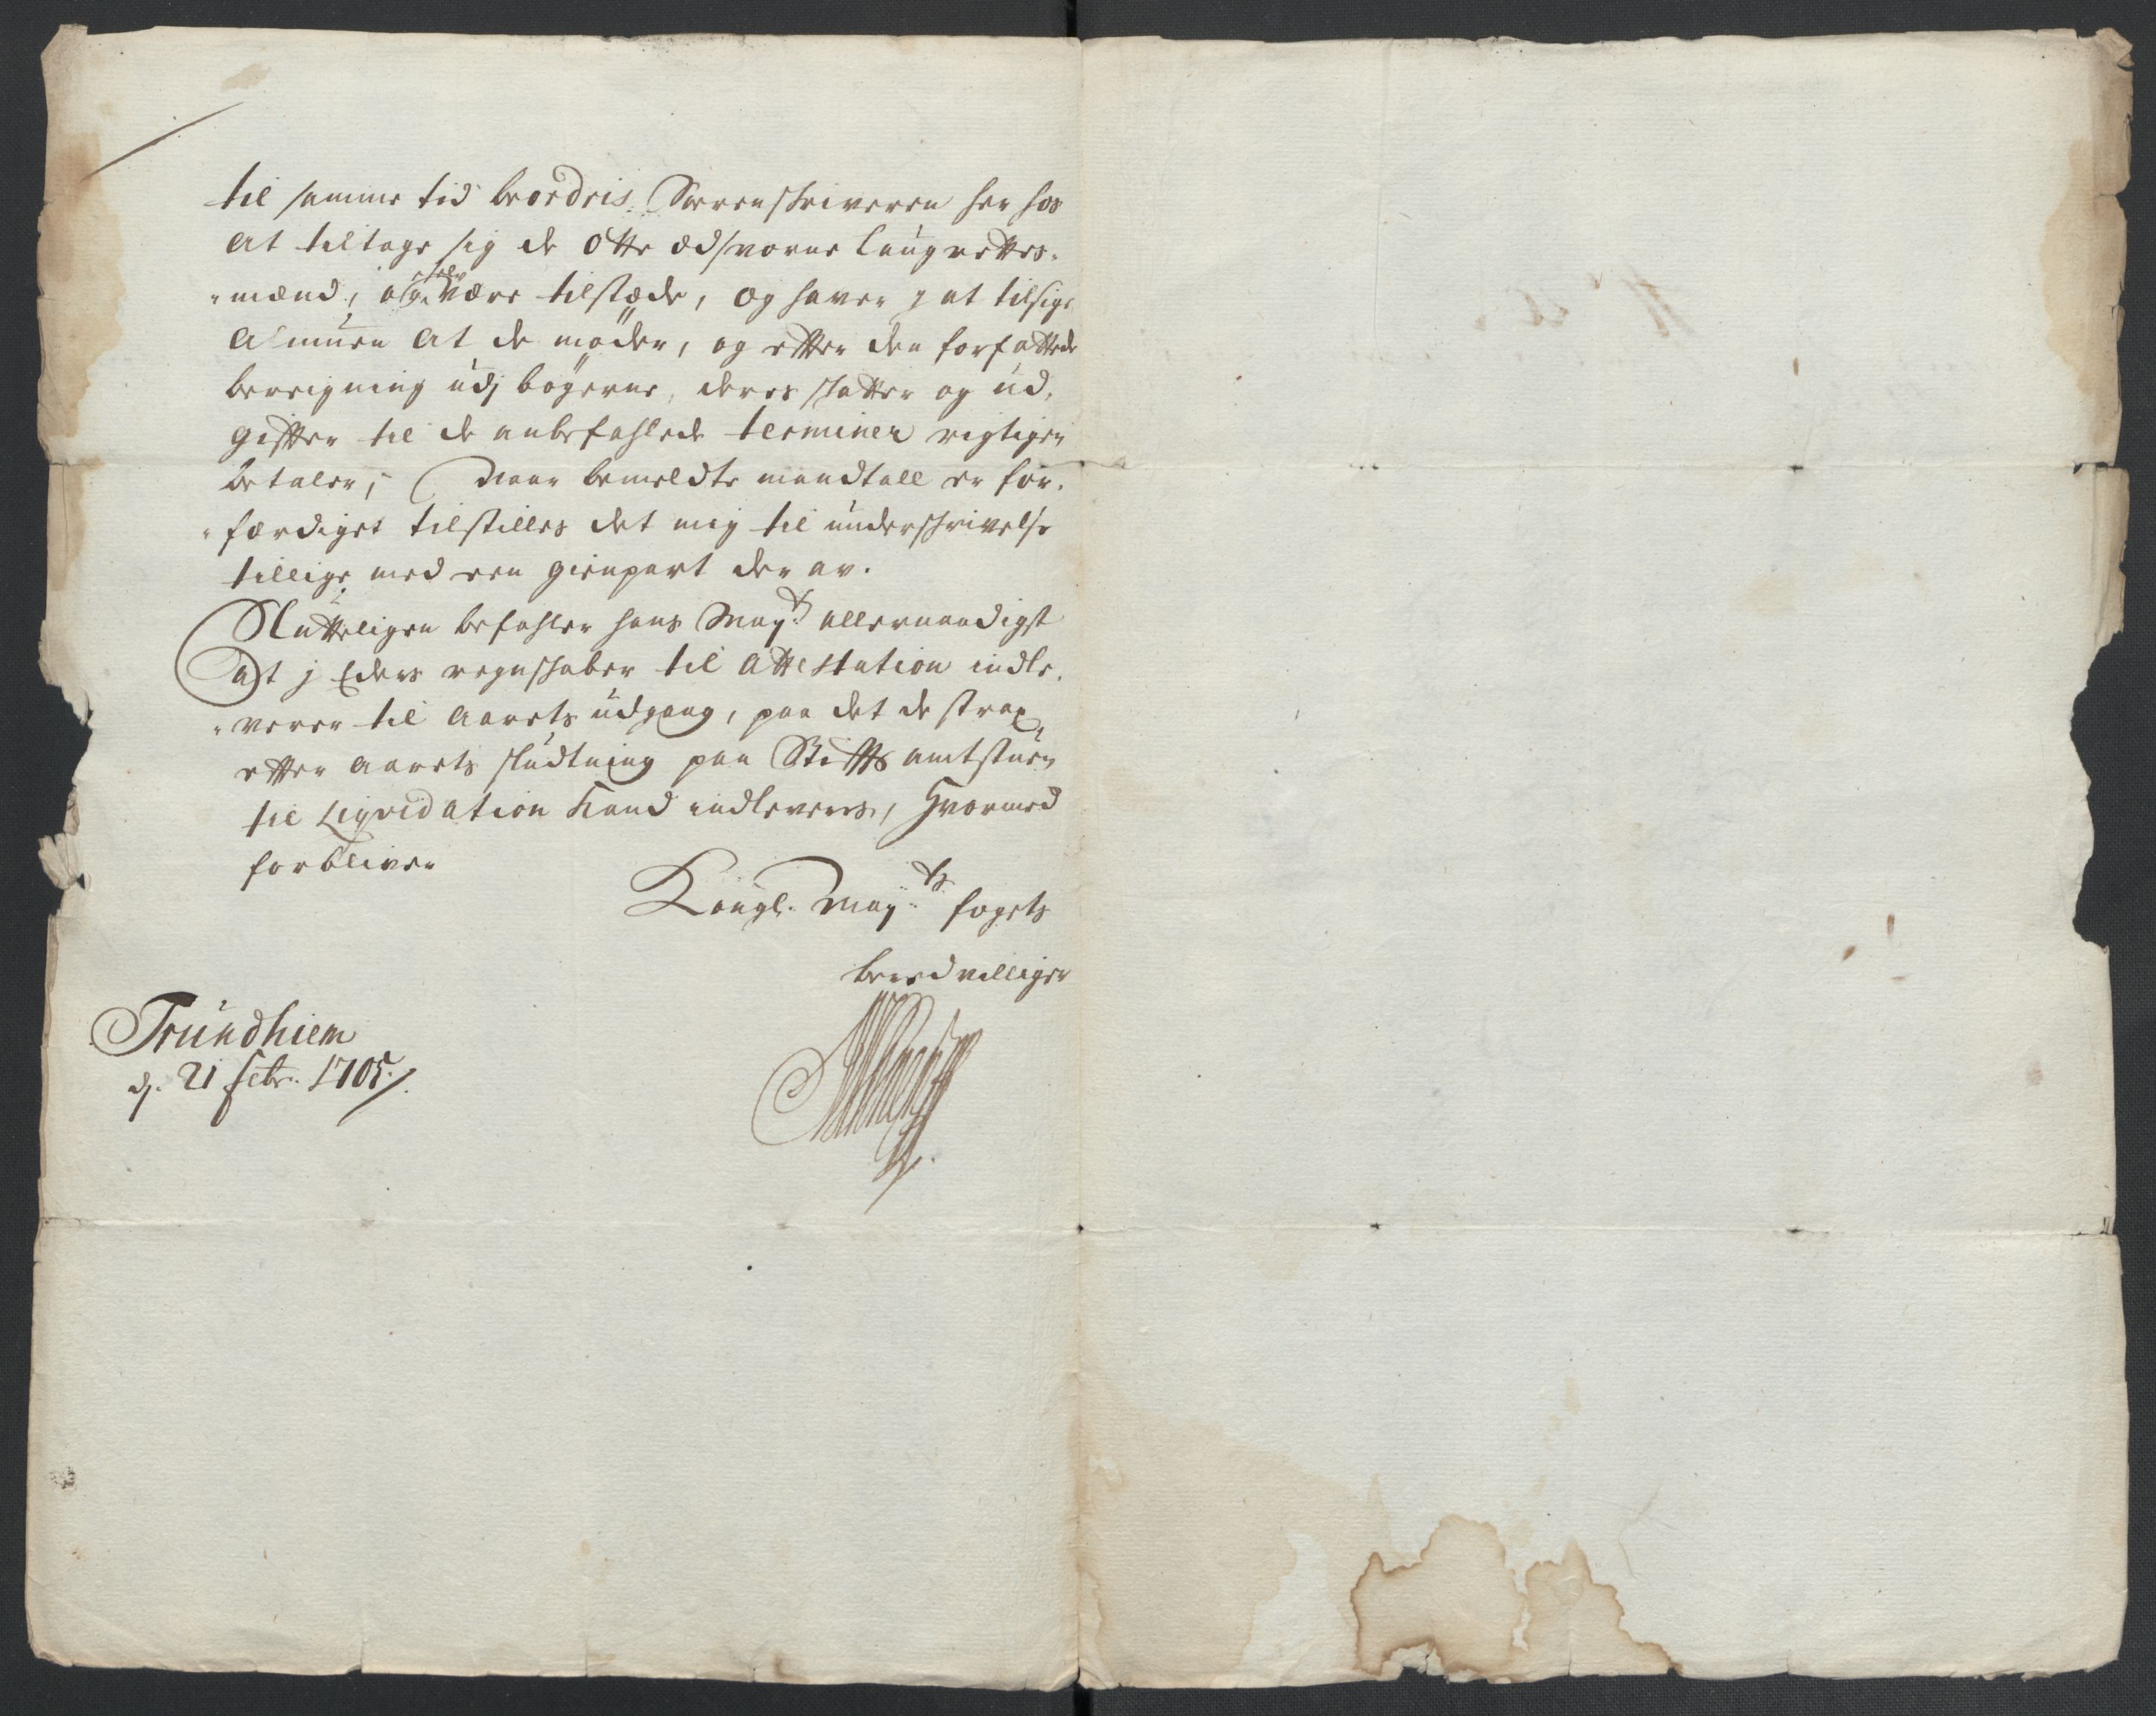 til samme tid beordris Sorenskriveren her hos
at tiltage sig de otte Edsvorne laugrettes-
mænd, og self være tilstæde, og haver j at tilsige
Almuen at de møder, og efter den forfattede
bereigning udj bøgerne, deres skatter og ud-
gifter til de anbefahlede terminer rigtigen
betaler, Naar bemeldte mandtall er for-
færdiget tilstilles det mig til underskrivelse
tillige med een gienpart der av.
Slutteligen befahler hans May:t allernaadigst
at j Eders regnskaber til attestation indle-
verer til aarets udgang, paa det de strax
efter aarets sludtning paa Stiftsamtstuen
til Liqvidation kand indleveris, Hvormed
forbliver
Kongl. May:ts fogets
beredvilliger
Trundhiem
d. 21 febr. 1705